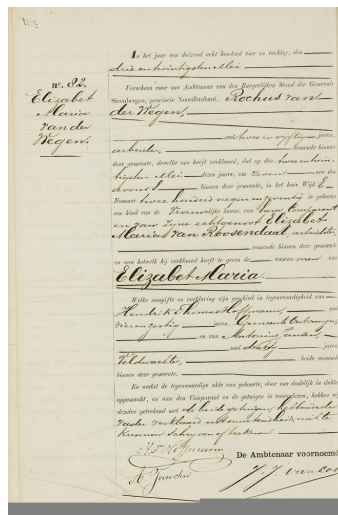 N°. 82.
Elizabet
Maria
van der
Wegen.
In het jaar een duizend acht honderd vier en tachtig, den
drie en twintigsten Mei
Verscheen voor ons Ambtenaar van den Burgerlijken Stand der Gemeente
Steenbergen, provincie Noordbrabant, Rochus van
der Wegen,
oud twee en vyftig jaren,
arbeider, wonende binnen
deze gemeente, dewelke ons heeft verklaard, dat op den twee en twin-
tigsten Mei dezes jaars, ten zeven ure des
avonds binnen deze gemeente, in het huis Wijk E
Nommer twee honderd negen en twintig is geboren
een kind van de Vrouwelijke kunne, van hem Comparant
en van zyne echtgenoot Elizabet
Maria van Roosendaal, arbeidster,
wonende binnen deze gemeente
en aan hetwelk hij verklaard heeft te geven de voornamen van
Elizabet Maria.
Welke aangifte en verklaring zijn geschied in tegenwoordigheid van
Hendrik Thomas Hoffmann, oud
vierenzestig jaren, Gemeente Ontvanger,
en van Antonius Jansen,
oud jaren
Veldwachter, beide wonende
binnen deze gemeente.
En wordt de tegenwoordige akte van geboorte, door ons dadelijk in dubbel
opgemaakt, en aan den Comparant en de getuigen is voorgelezen, hebben wij
dezelve getekend met de beide getuigen, hebbende de
vader verklaard uit onkunde niet te
kunnen schryven of teekenen.
H.T. Hoffmann
De Ambtenaar voornoemd
A. Jansen
J. J. van